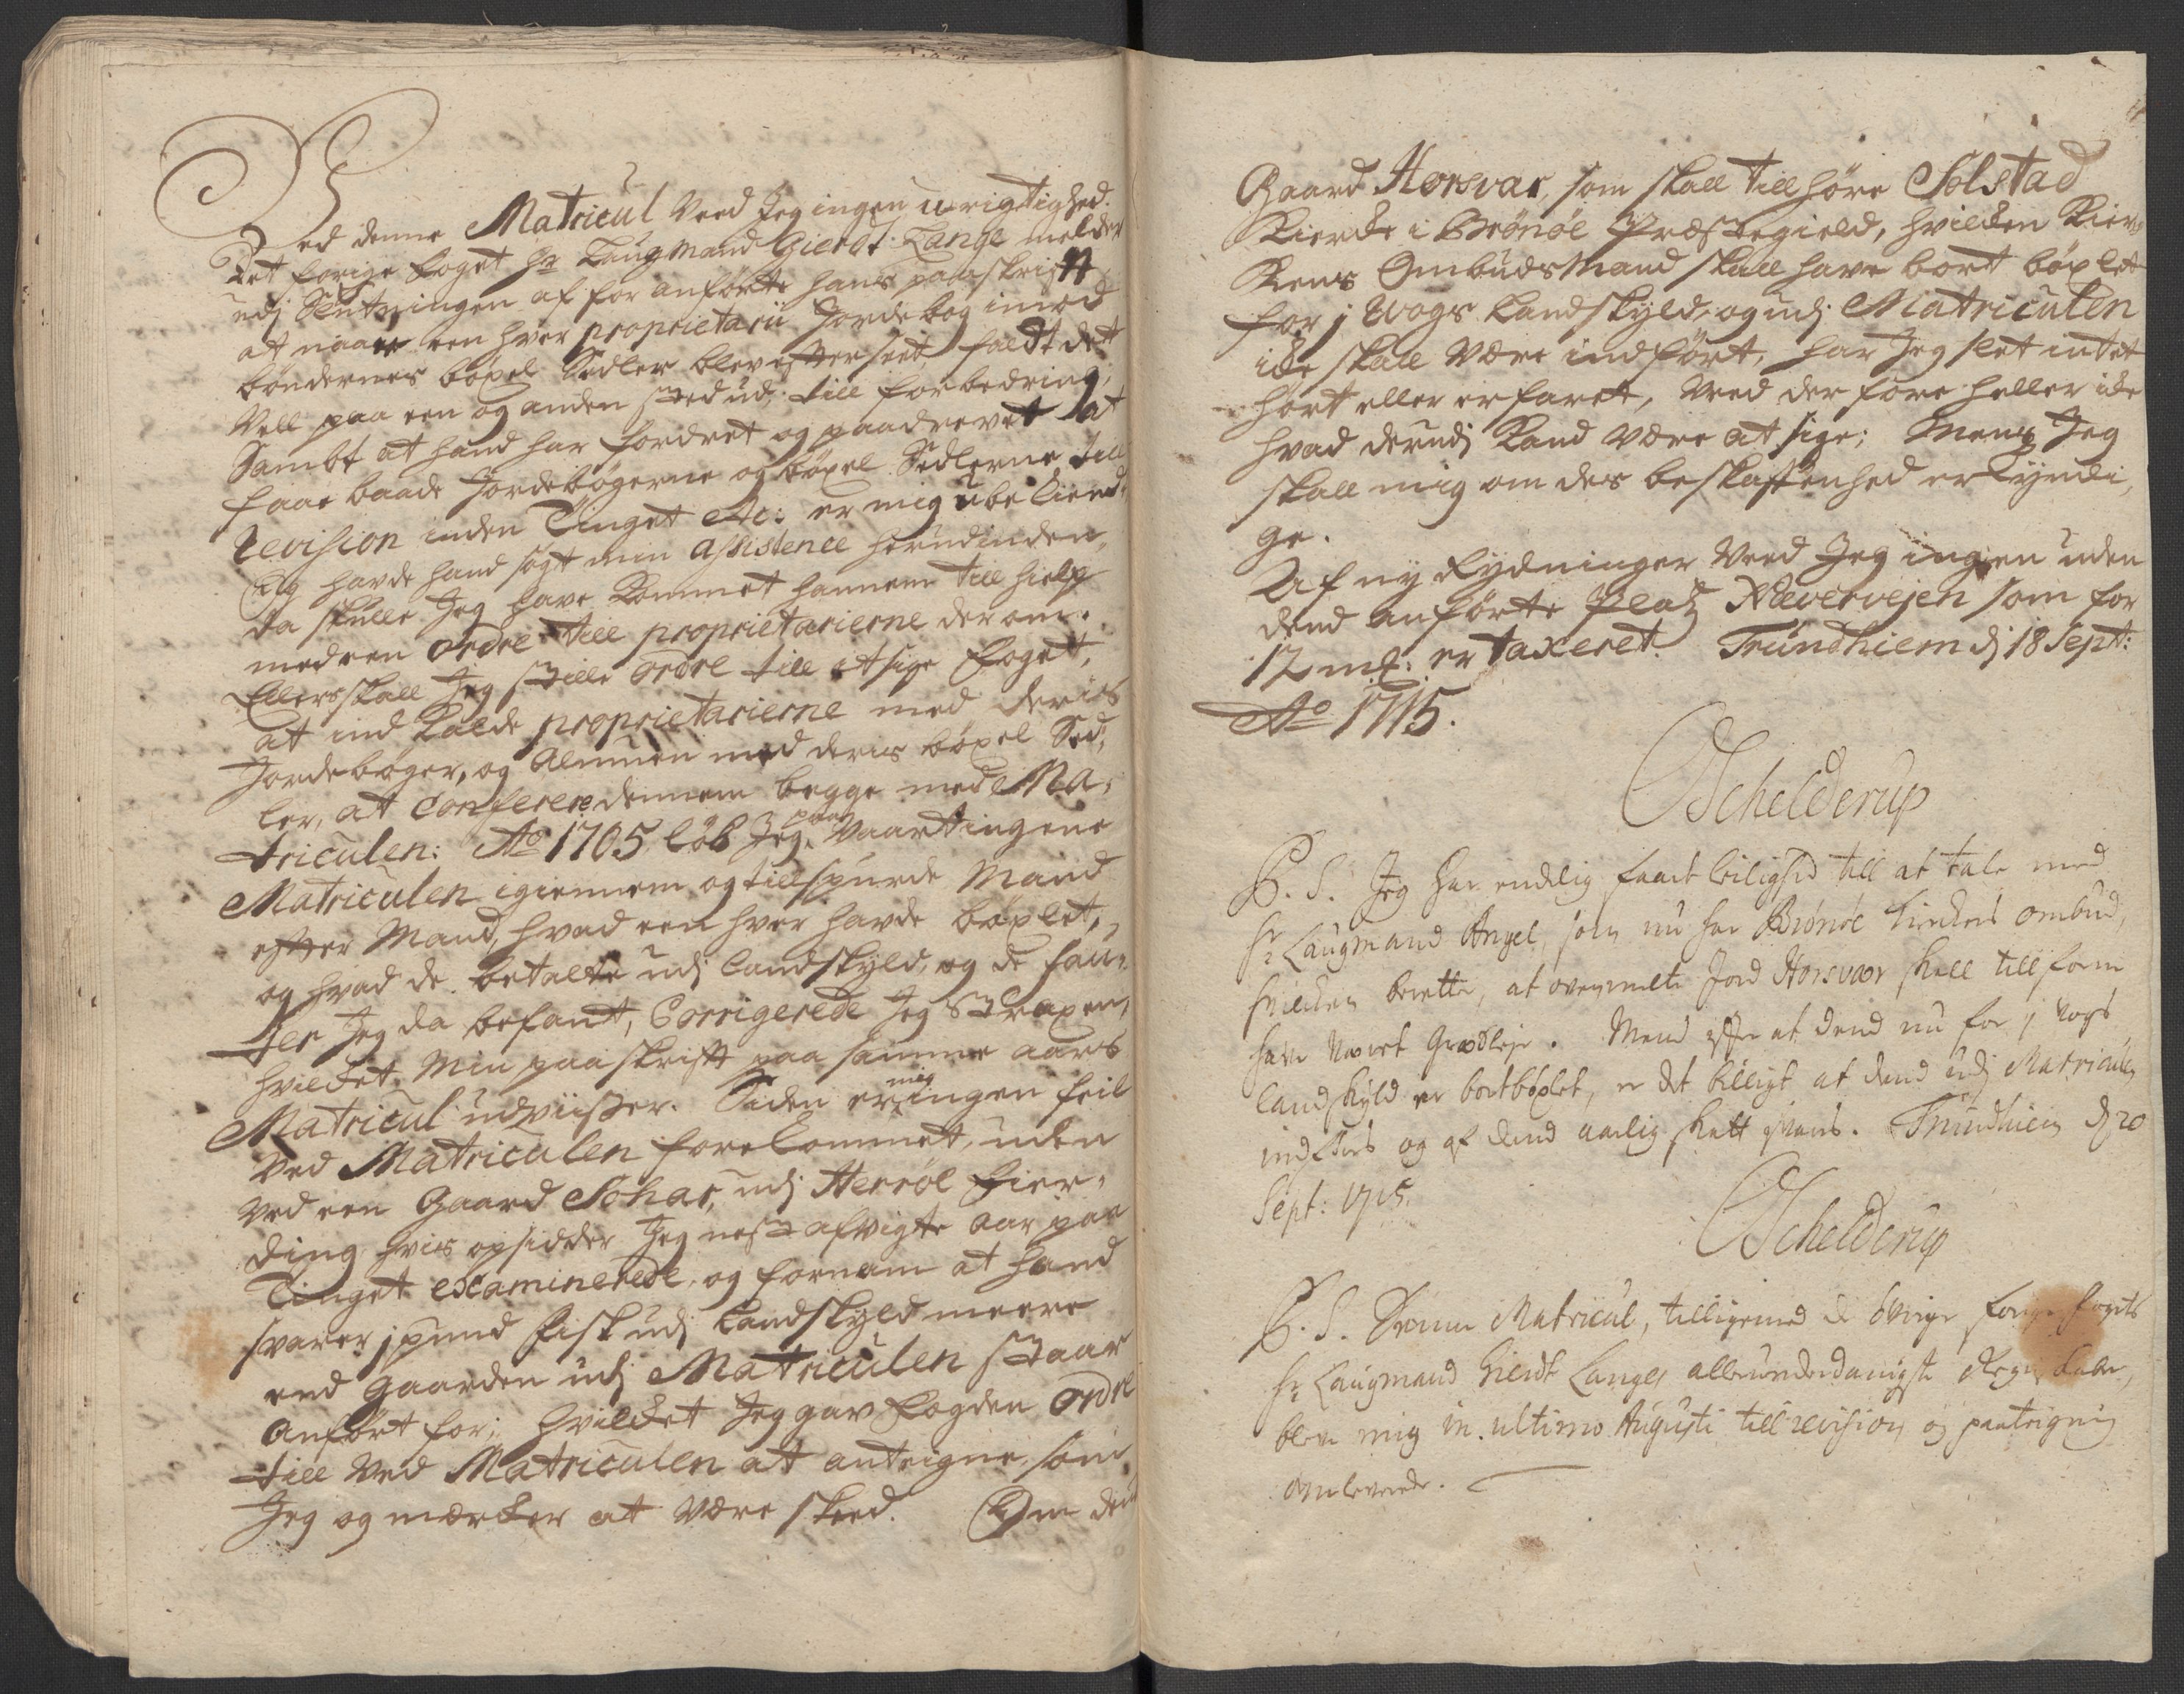 Ved denne Matricul Veed Jeg ingen urigtighed.
Det forige foget Hr Laugmand Gierdt Lange melder
udj Slutningen af for anførte hans paaskrifft
at naar een hver proprietarii Jordebog imod
bøndernes bøxel Sedler blev effterseet, faldt det
Vell paa een og anden sted ud, till forbedring,
Sambt at hand har fordret og paadrevet at
faae baade Jordebøgerne og bøxel Sedlerne till
Revision inden Tinget etc: er mig ubekiendt,
Og havde hand søgt min assistence herudinden,
da skulle Jeg have kommet hannem till hielp
med een ordre till proprietarierne derom.
Ellers skall Jeg stille ordre till itzige foget,
at ind kalde proprietarierne med deris
Jordebøger, og Almuen med deris bøxel Sed,
ler, at conferere dennem begge med Ma,
triculen: Ao 1705, løb Jeg paa Vaartingene
Matriculen igiennem og tillspurde Mand
effter Mand, hvad een hver havde bøxlet,
og hvad de betalte udj landskyld, og de fau,
ter Jeg da befandt, Corrigerede Jeg strax en,
hvilcket Min paaskrifft paa samme aars
Matricul udviiser. Siden er mig ingen feil
Ved Matriculen forekommet, uden
Ved een Gaard Sohar, udj Herrøe fier,
ding, hvis opsidder Jeg nest afvigte aar paa
Tinget examinerede, og fornam at hand
svarer j pund fisk udj Landskyld meere
end Gaarden udj Matriculen staar
anført for; hvilcket Jeg gav fogden ordre
till Ved Matriculen at anteigne, som
Jeg og mærcker at være skeed. Om den
Gaard Horsvar, som skall till høre Solstad
Kircke i Brønøe Præstegield, hvilcken Kier,
kens Ombudsmand skall have bort bøxlet
for j Wogs Landskyld, og udj Matriculen
icke skall være indført, har Jeg slet intet
hørt eller erfaret, Veed der fore heller icke
hvad derudj kand være at sige; Mens Jeg
skall mig om des beskaffenhed erkyndi,
ge.
Af ny Rydninger Veed Jeg ingen uden
dend anførte Platz Næverveien som for
12 mk: er taxeret. Trundhiem dj 18 Sept:
Ao 1715.
Schelderup
P. S. Jeg har endelig faaet leilighed till at tale med
Hr Laugmand Angel, som nu har Brønøe Kirckes ombud,
hvilcken berette, at ovenmelte Jord Horsvær skall tillforn
have Været Grædsleje. Mend effter at dend nu for j Vogs
landskyld er bortbøxlet, er det billigt at dend udj Matriculen
indføres og af dend aarlig skatt svares. Trundhiem d 20
Sept: 1715.
Schelderup
P. S. Denne Matricul, tilligemed de øvrige forige fogets
Hr Laugmand Gierdt Langes allerunderdanigste Regenskaber,
blev mig in ultimo Augusti till revision og paateigning
offverleverede.